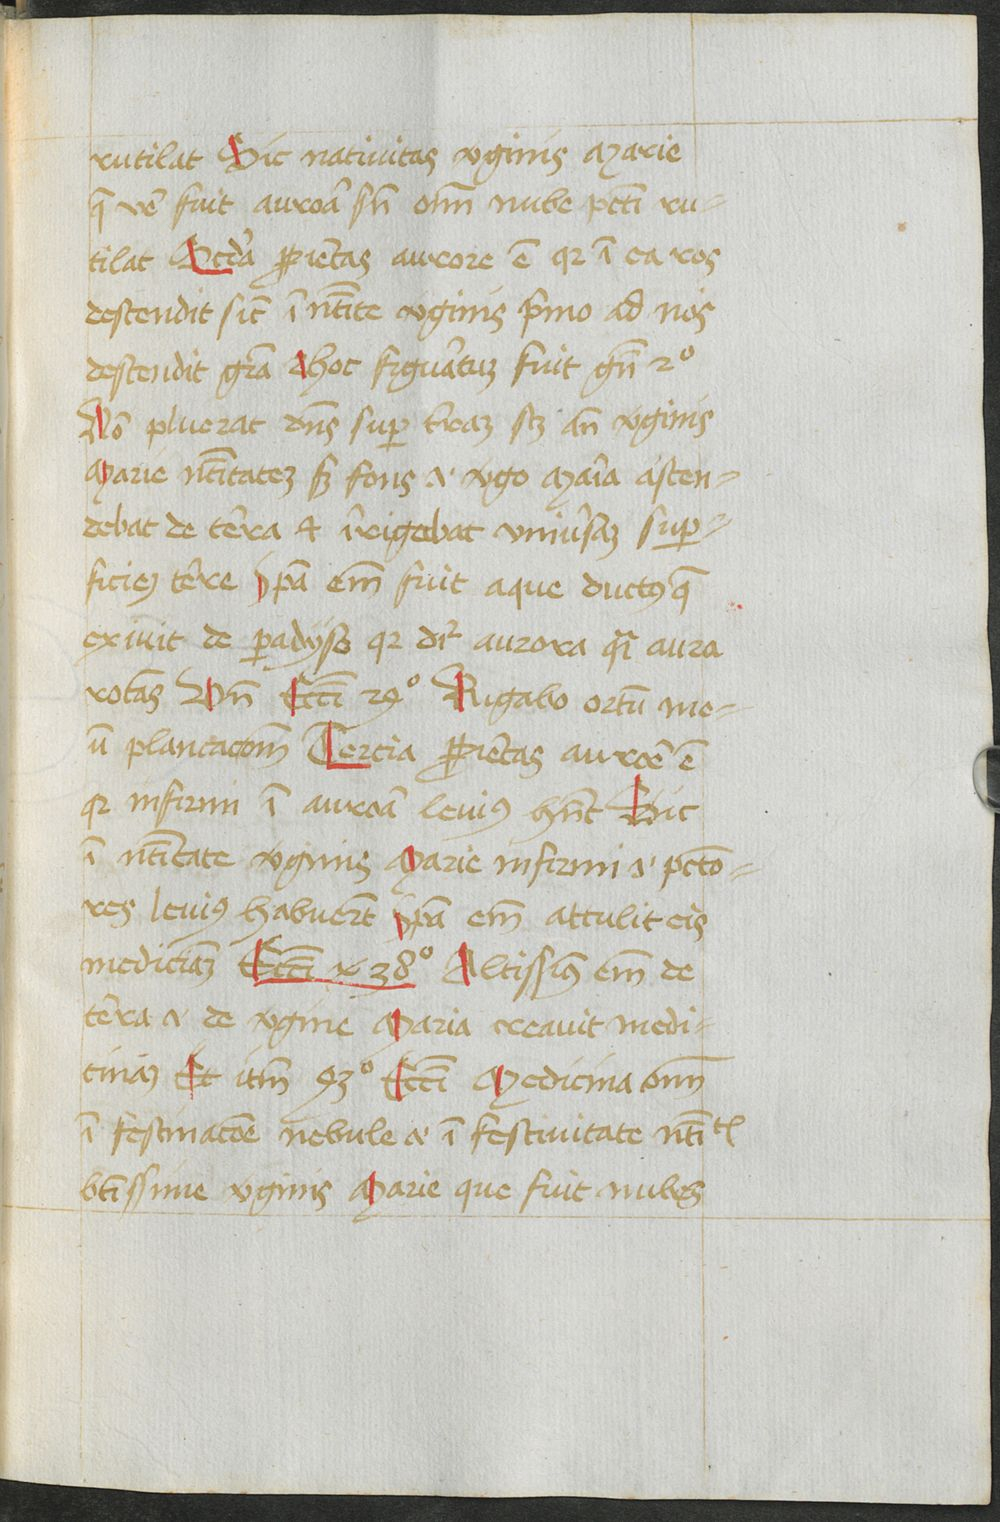 rutilat Sic nativitas v̾ginis Marie
q̄ ve᷒ fuit auro᷒a sn̄ om̄i nube pctī ru-
tilat Sc̄da p̱p̱ietas aurore ē qr ī ea ros
descendit sic̄ ī nt̄ite v̾ginis p̾mo ad nos
descendit gr̄a Et hoc figuratuꝫ fuit gn̄ 2º
Nō pluerat dn̄s sup̱ terraꝫ sꝫ an̄ v̾ginis
Marie nt̄itateꝫ sꝫ fons et v̾go Maria ascen-
debat de terra et irrigebat univ̾saꝫ sup̱-
ficieꝫ terre Ip̄a em̄ fuit aque ductꝰ q̄
exivit de p̱adyso qr dr̄ aurora q̄i aura
rotās Vn̄ Ecc̄i 29º Rigabo ortū me-
ū plantacōm̄ Tercia p̱p̱ietas auro᷒e ē
qr infirmi ī auro᷒a leviꝰ hn̄t Sic
ī nt̄itate v̾ginis Marie infirmi et pcto-
res leviꝰ habuer̄t Ip̄a em̄ attulit eis
medicinaꝫ Ecc̄i x38º Altissimꝰ em̄ de
terra et de v̾gine Maria creavit medi-
cinaꝫ Et itm̄ 43º Ecc̄i Medicina om̄
ī festinacōe nebule et ī festivitate nt̄itꝭ
bt̄issime v̾ginis Marie que fuit nubes